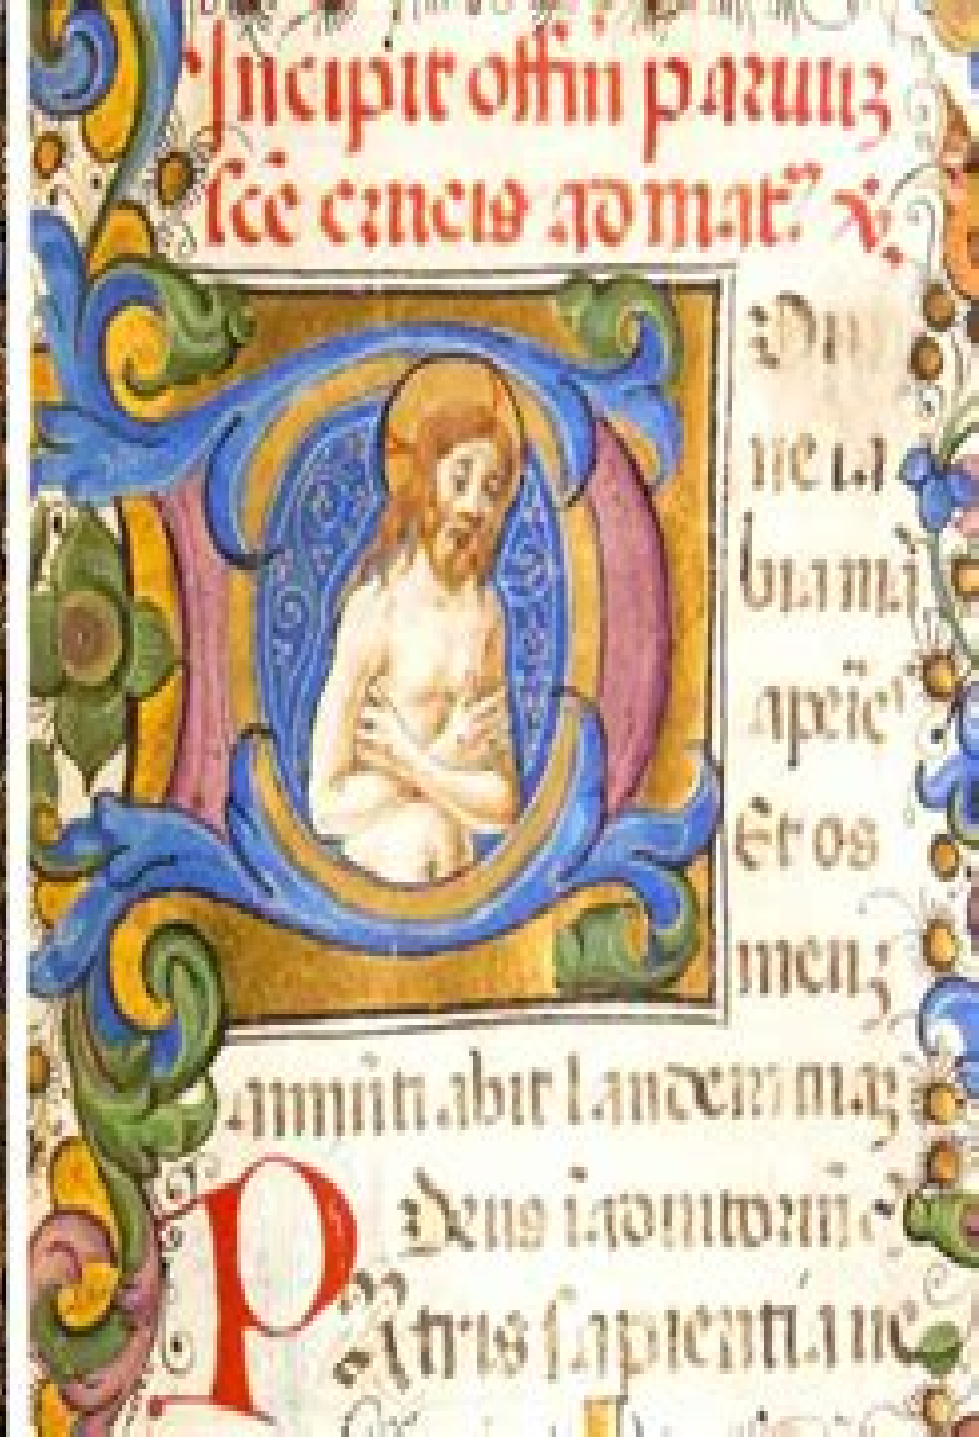 Incipit offm paruuz
sce crucis ad mat. x.
Dn
ne la
bia mã
apeie
Et os
meuz
annuntiabit laudem tuaz
Deus i adiutoriũ
Patris sapientia ue